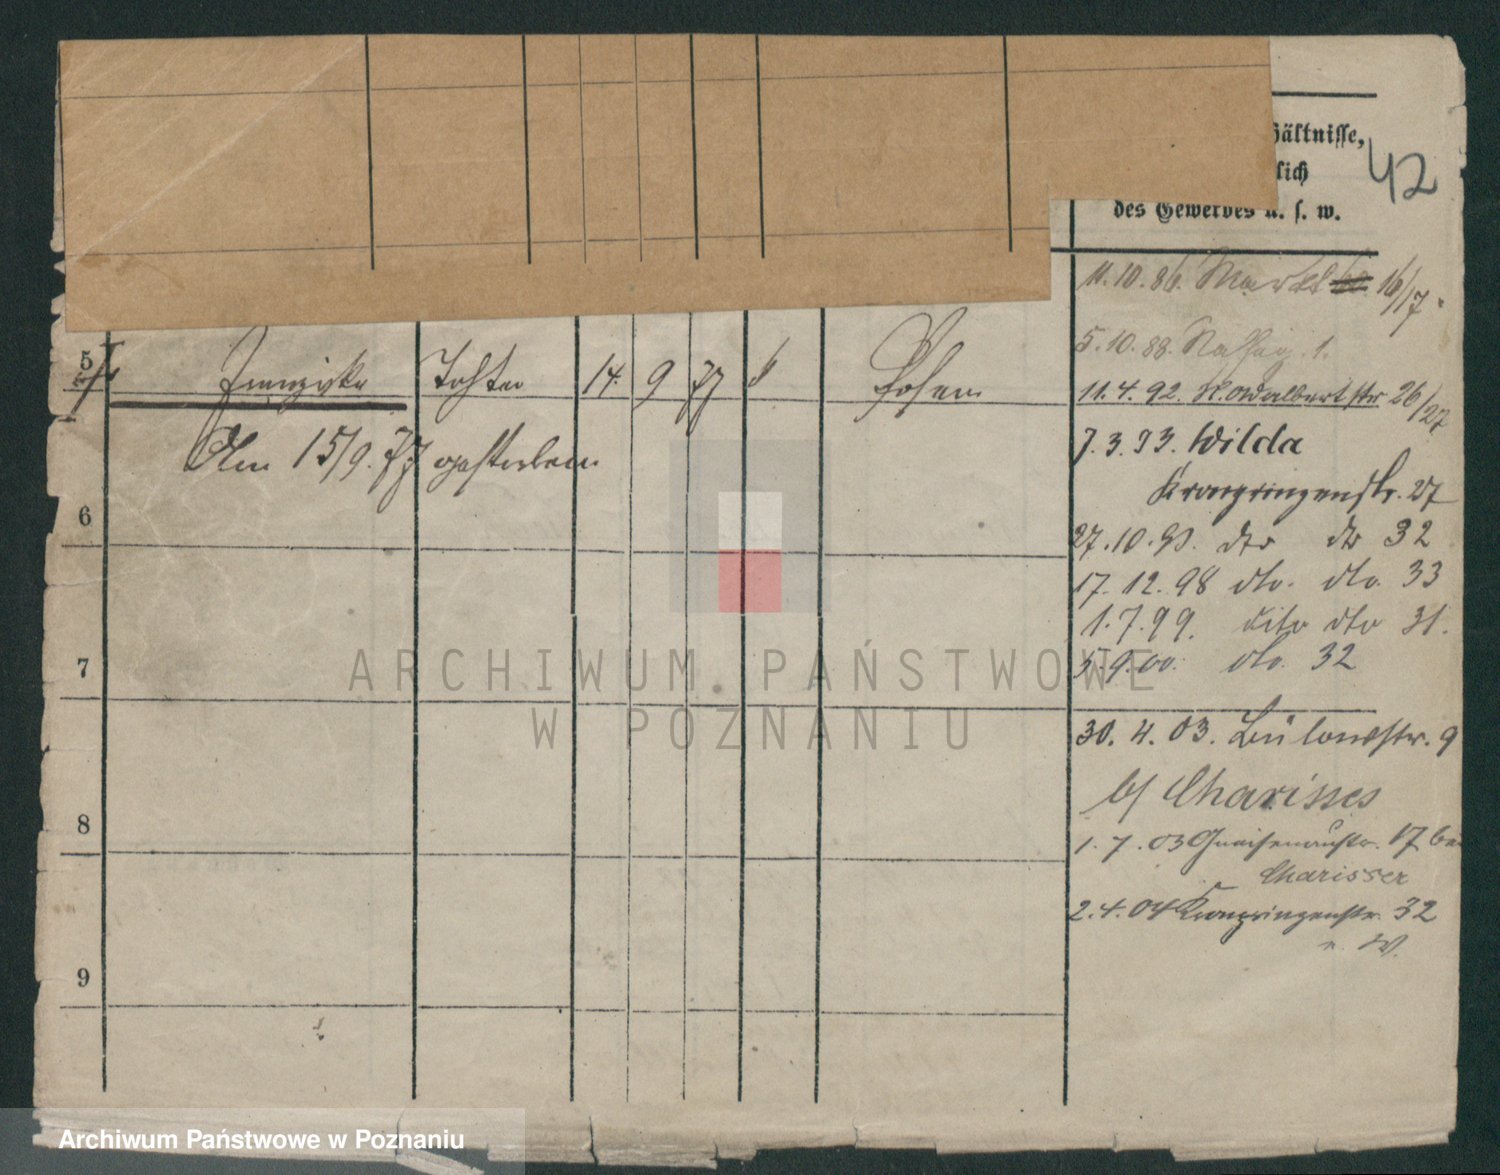 hältnisse,
lich
42
des Gewerbes u. s. w.
11.10.86. Markt 16/17.
5.10.88. 1.
5 Franziska Tochter 14. 9 77 Posen
11.4.92. St. Adalbertstr 26/27
7.3.93. Wilda
Am 15/9. 77 gestorben
Kronprinzenstr. 27
6
27.10. dto dto 32
17.12.98 dto. dto. 33
1.7.99. dito dto 31.
7
5.9.00. dto. 32
ARCHIWUM PAŃSTWOWE
W POZNANIU
30.4.03. Bülowstr. 9
b/ Charisses
8
1.7.03 Gneisenaustr. 17 bei
Charisser
2.4.04 Kronprinzenstr. 32
W.
9
Archiwum Państwowe w Poznaniu